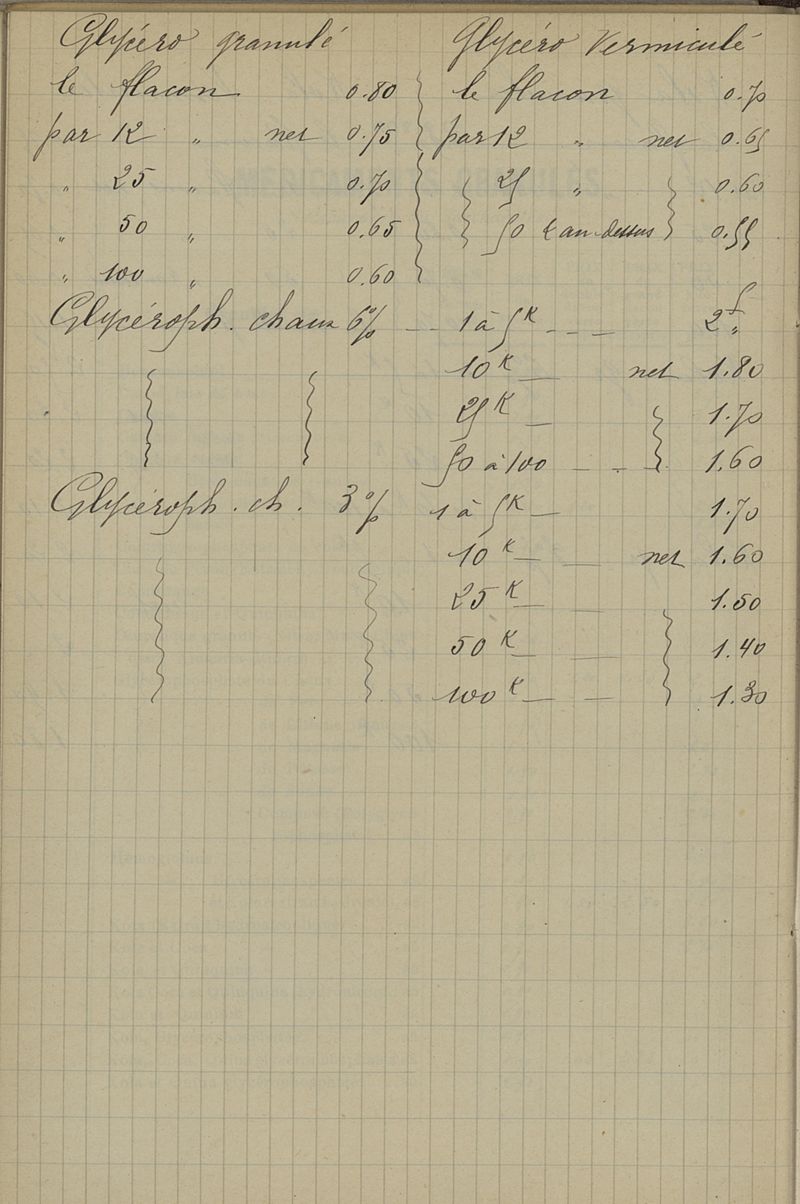 Glycéro granulé
le flacon 0.80
par 12 " net 0.75
" 25 " 0.70
" 50 " 0.65
" 100 " 0.60
Glycéro Vermiculé
le flacon 0.70
par 12 " net 0.65
25 " 0.60
50 & au-dessus 0.55
Glycéroph. chaux 6% — 1 à 5K — — — 2f "
10K — net 1.80
25K — 1.70
50 à 100 — — — 1.60
Glycéroph. ch. 3% 1 à 5K — 1.70
10K — — net 1.60
25K — — 1.50
50K — — 1.40
100K — — 1.30